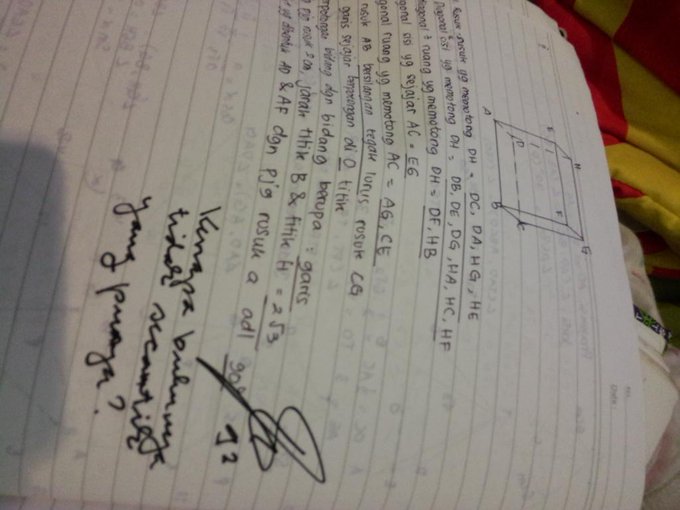 Rusuk rusuk yg memotong DH = DC, DA, HG, HE
Diagonal sisi yg memotong DH = DB, DE, DG, HA, HC, HF
diagonal ruang yg memotong DH = DF, HB
gonal sisi yg sejajar AC = EG
gonal ruang yg memotong AC = AG, CE
rusuk AB bersilangan tegak lurus rusuk CG
garis sejajar berpotongan di 0 titik
rpotongan bidang dgn bidang berupa = garis
pjg rusuk 2 cm jarak titik B & titik H = 2√3
yg dibentuk AD & AF dgn pjg rosuk a adl 90°
92
Kenapa bukunya
tidak secantik
yang punya?
A
B
D
E
F
H
G